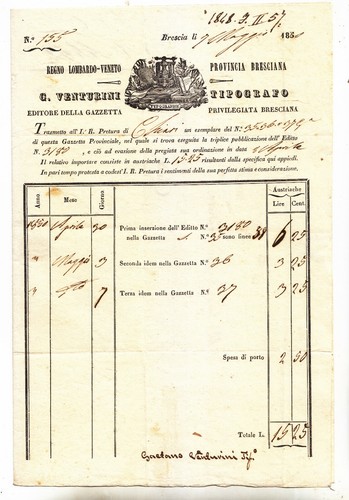 1848. 3. IV 57.
N.º 155 Brescia li 9 Maggio 185
REGNO LOMBARDO-VENETO PROVINCIA BRESCIANA
G. VENTURINI TIPOGRAFO
EDITORE DELLA GAZZETTA PRIVILEGIATA BRESCIANA
TIPOGRAFIA
Trasmetto all'I. R. Pretura di Chiari un esemplare del N.º 35-36-37
di questa Gazzetta Provinciale, nel quale si trova eseguita la triplice pubblicazione dell'Editto
N. 3180, e ciò ad evasione della pregiata sua ordinazione in data Aprile
Il relativo importare consiste in austriache L. 15:25 risultanti della specifica qui appiedi.
In pari tempo protesta a codest'I. R. Pretura i sentimenti della sua perfetta stima e considerazione.
Anno Mese Giorno Austriache
Lire Cent.
1850 Aprile 30 Prima inserzione dell'Editto N.º 3180
nella Gazzetta N.º 35 sono linee 38 6 25
" Maggio 3 Seconda idem nella Gazzetta N.º 36 3 25
" 7 Terza idem nella Gazzetta N.º 37 3 25
Spesa di porto 2 50
Totale L. 15 25
Gaetano Venturini